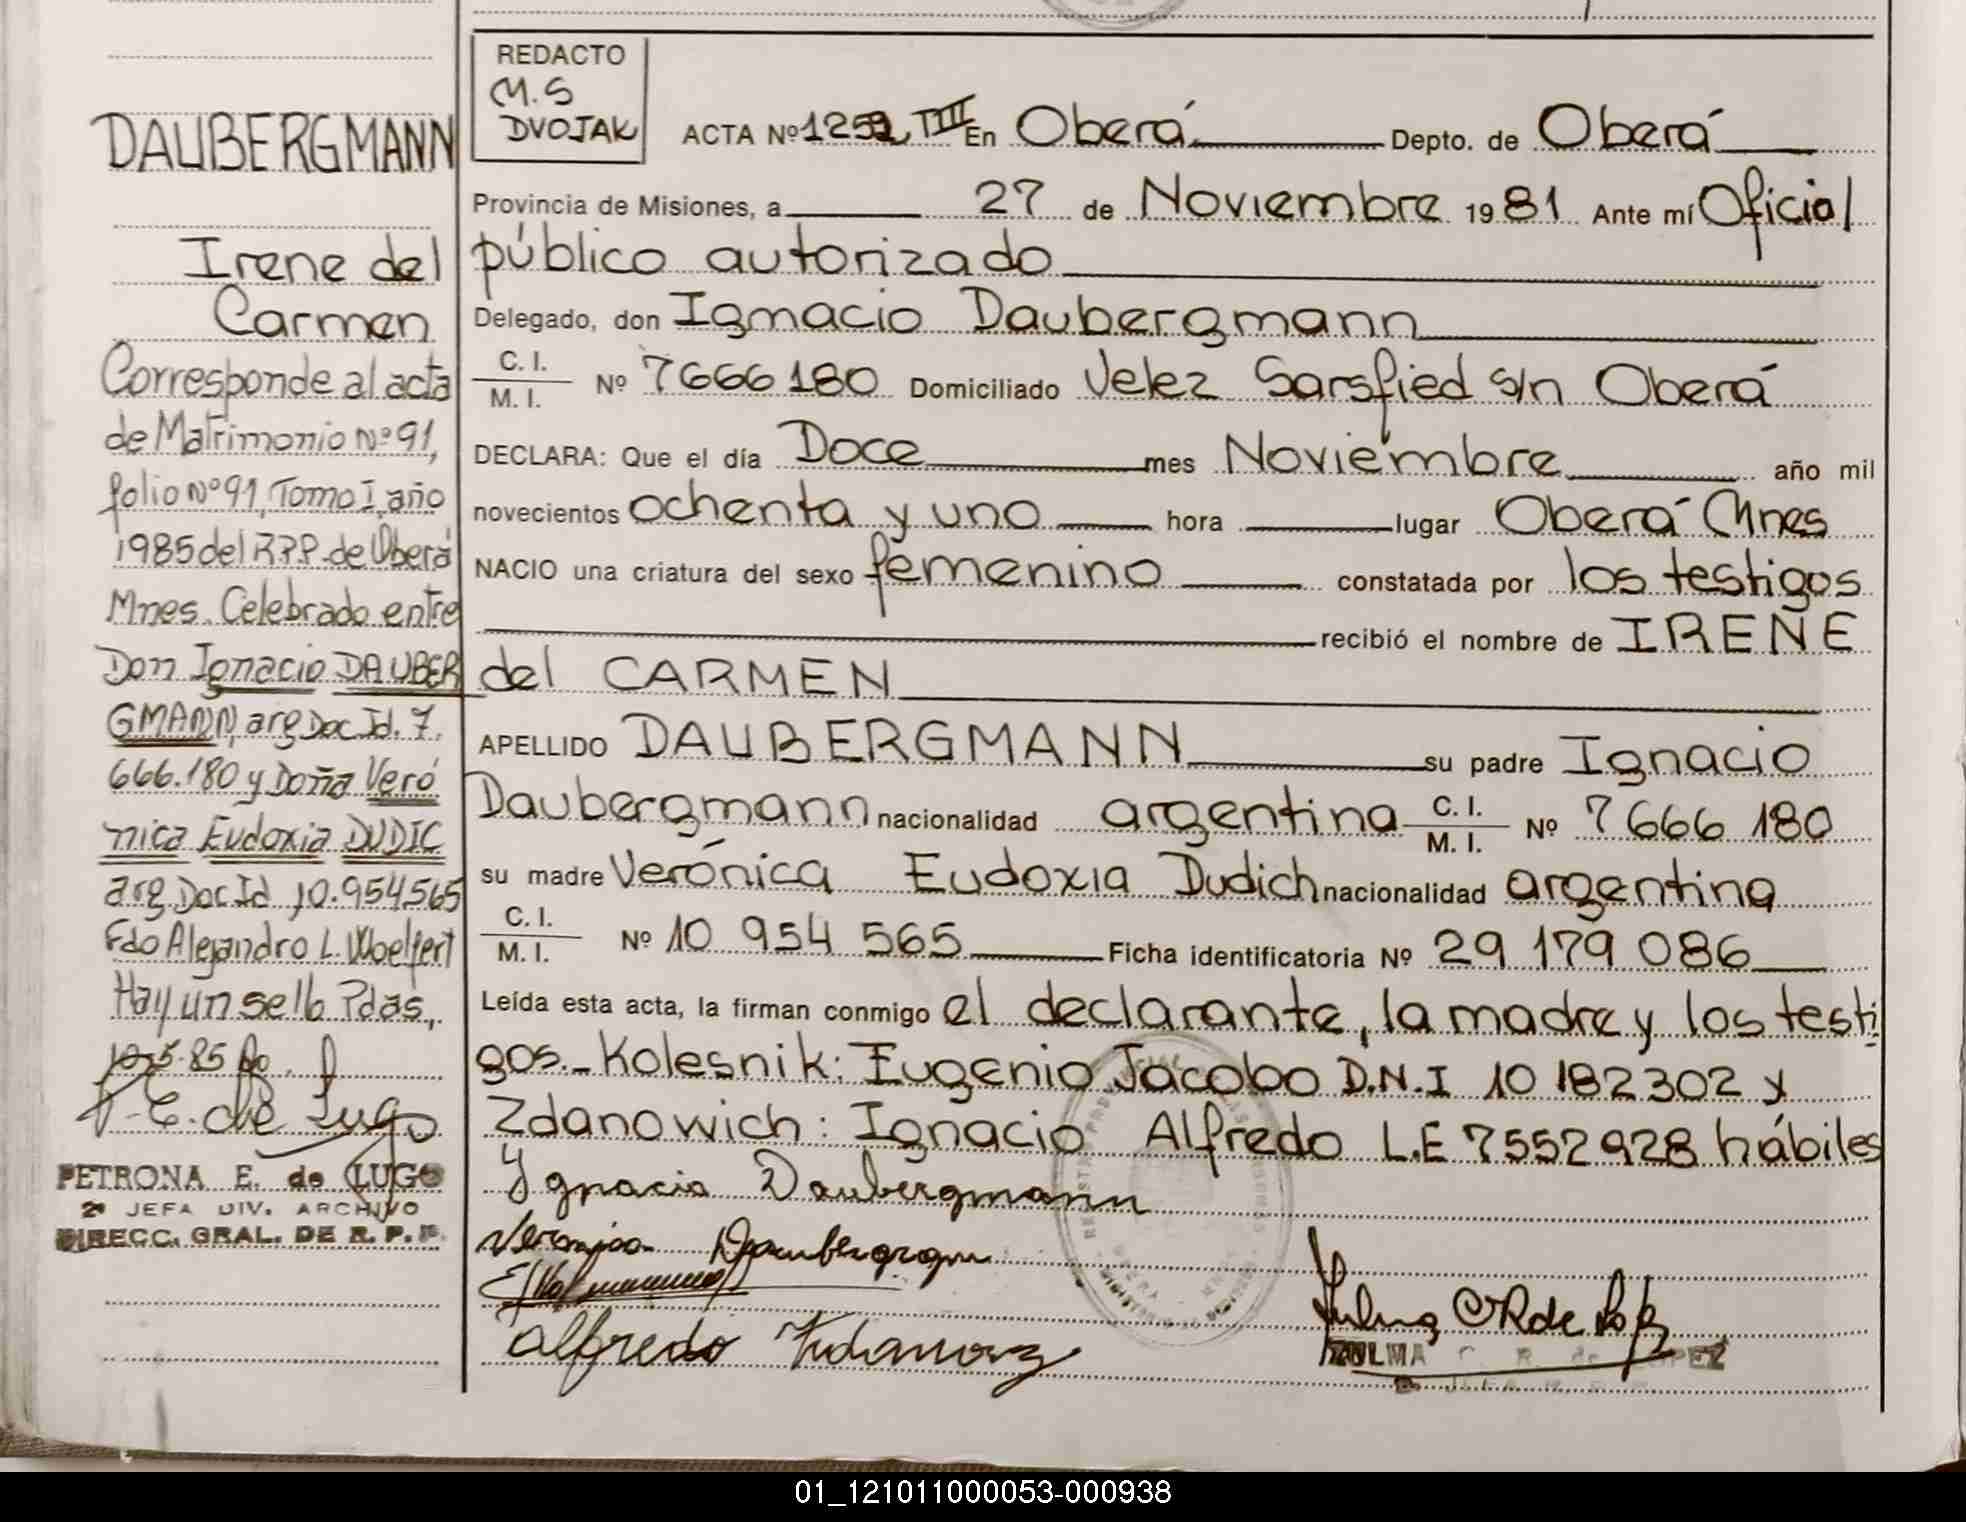 DAUBERGMANN
Irene del
Carmen
Corresponde al acta
de Matrimonio Nº 91,
folio Nº 91, Tomo I, año
1985 del R.P.P. de Oberá
Mnes. Celebrado entre
Don Ignacio DAUBER
GMANN, arg Doc Id. 7.
666.180 y Doña Veró
nica Eudoxia DUDIC
arg Doc Id 10.954565
Fdo Alejandro L. Woelfert
Hay un sello Pdas,
10-5-85
P. E. de Lugo
PETRONA E. de LUGO
2º JEFA DIV. ARCHIVO
DIRECC. GRAL. DE R. P. P.
REDACTO
M.S
DVOJAK
ACTA Nº 1252 TIII En Oberá Depto. de Oberá
Provincia de Misiones, a 27 de Noviembre 1981 Ante mí Oficial
público autorizado
Delegado, don Ignacio Daubergmann
C. I.
M. I. Nº 7666180 Domiciliado Velez Sarsfied s/n Oberá
DECLARA: Que el día Doce mes Noviembre año mil
novecientos ochenta y uno hora lugar Oberá Mnes
NACIO una criatura del sexo femenino constatada por los testigos
recibió el nombre de IRENE
del CARMEN
APELLIDO DAUBERGMANN su padre Ignacio
Daubergmann nacionalidad argentina C. I.
M. I. Nº 7666 180
su madre Verónica Eudoxia Dudich nacionalidad argentina
C. I.
M. I. Nº 10 954 565 Ficha identificatoria Nº 29 179 086
Leída esta acta, la firman conmigo el declarante, la madre y los testi
gos.- Kolesnik: Eugenio Jacobo D.N.I 10 182302 y
Zdanowich: Ignacio Alfredo L.E 7552928 hábiles
Ignacio Daubergmann
Veronica
Alfredo
ZULMA C. R. de LOPEZ
01_121011000053-000938